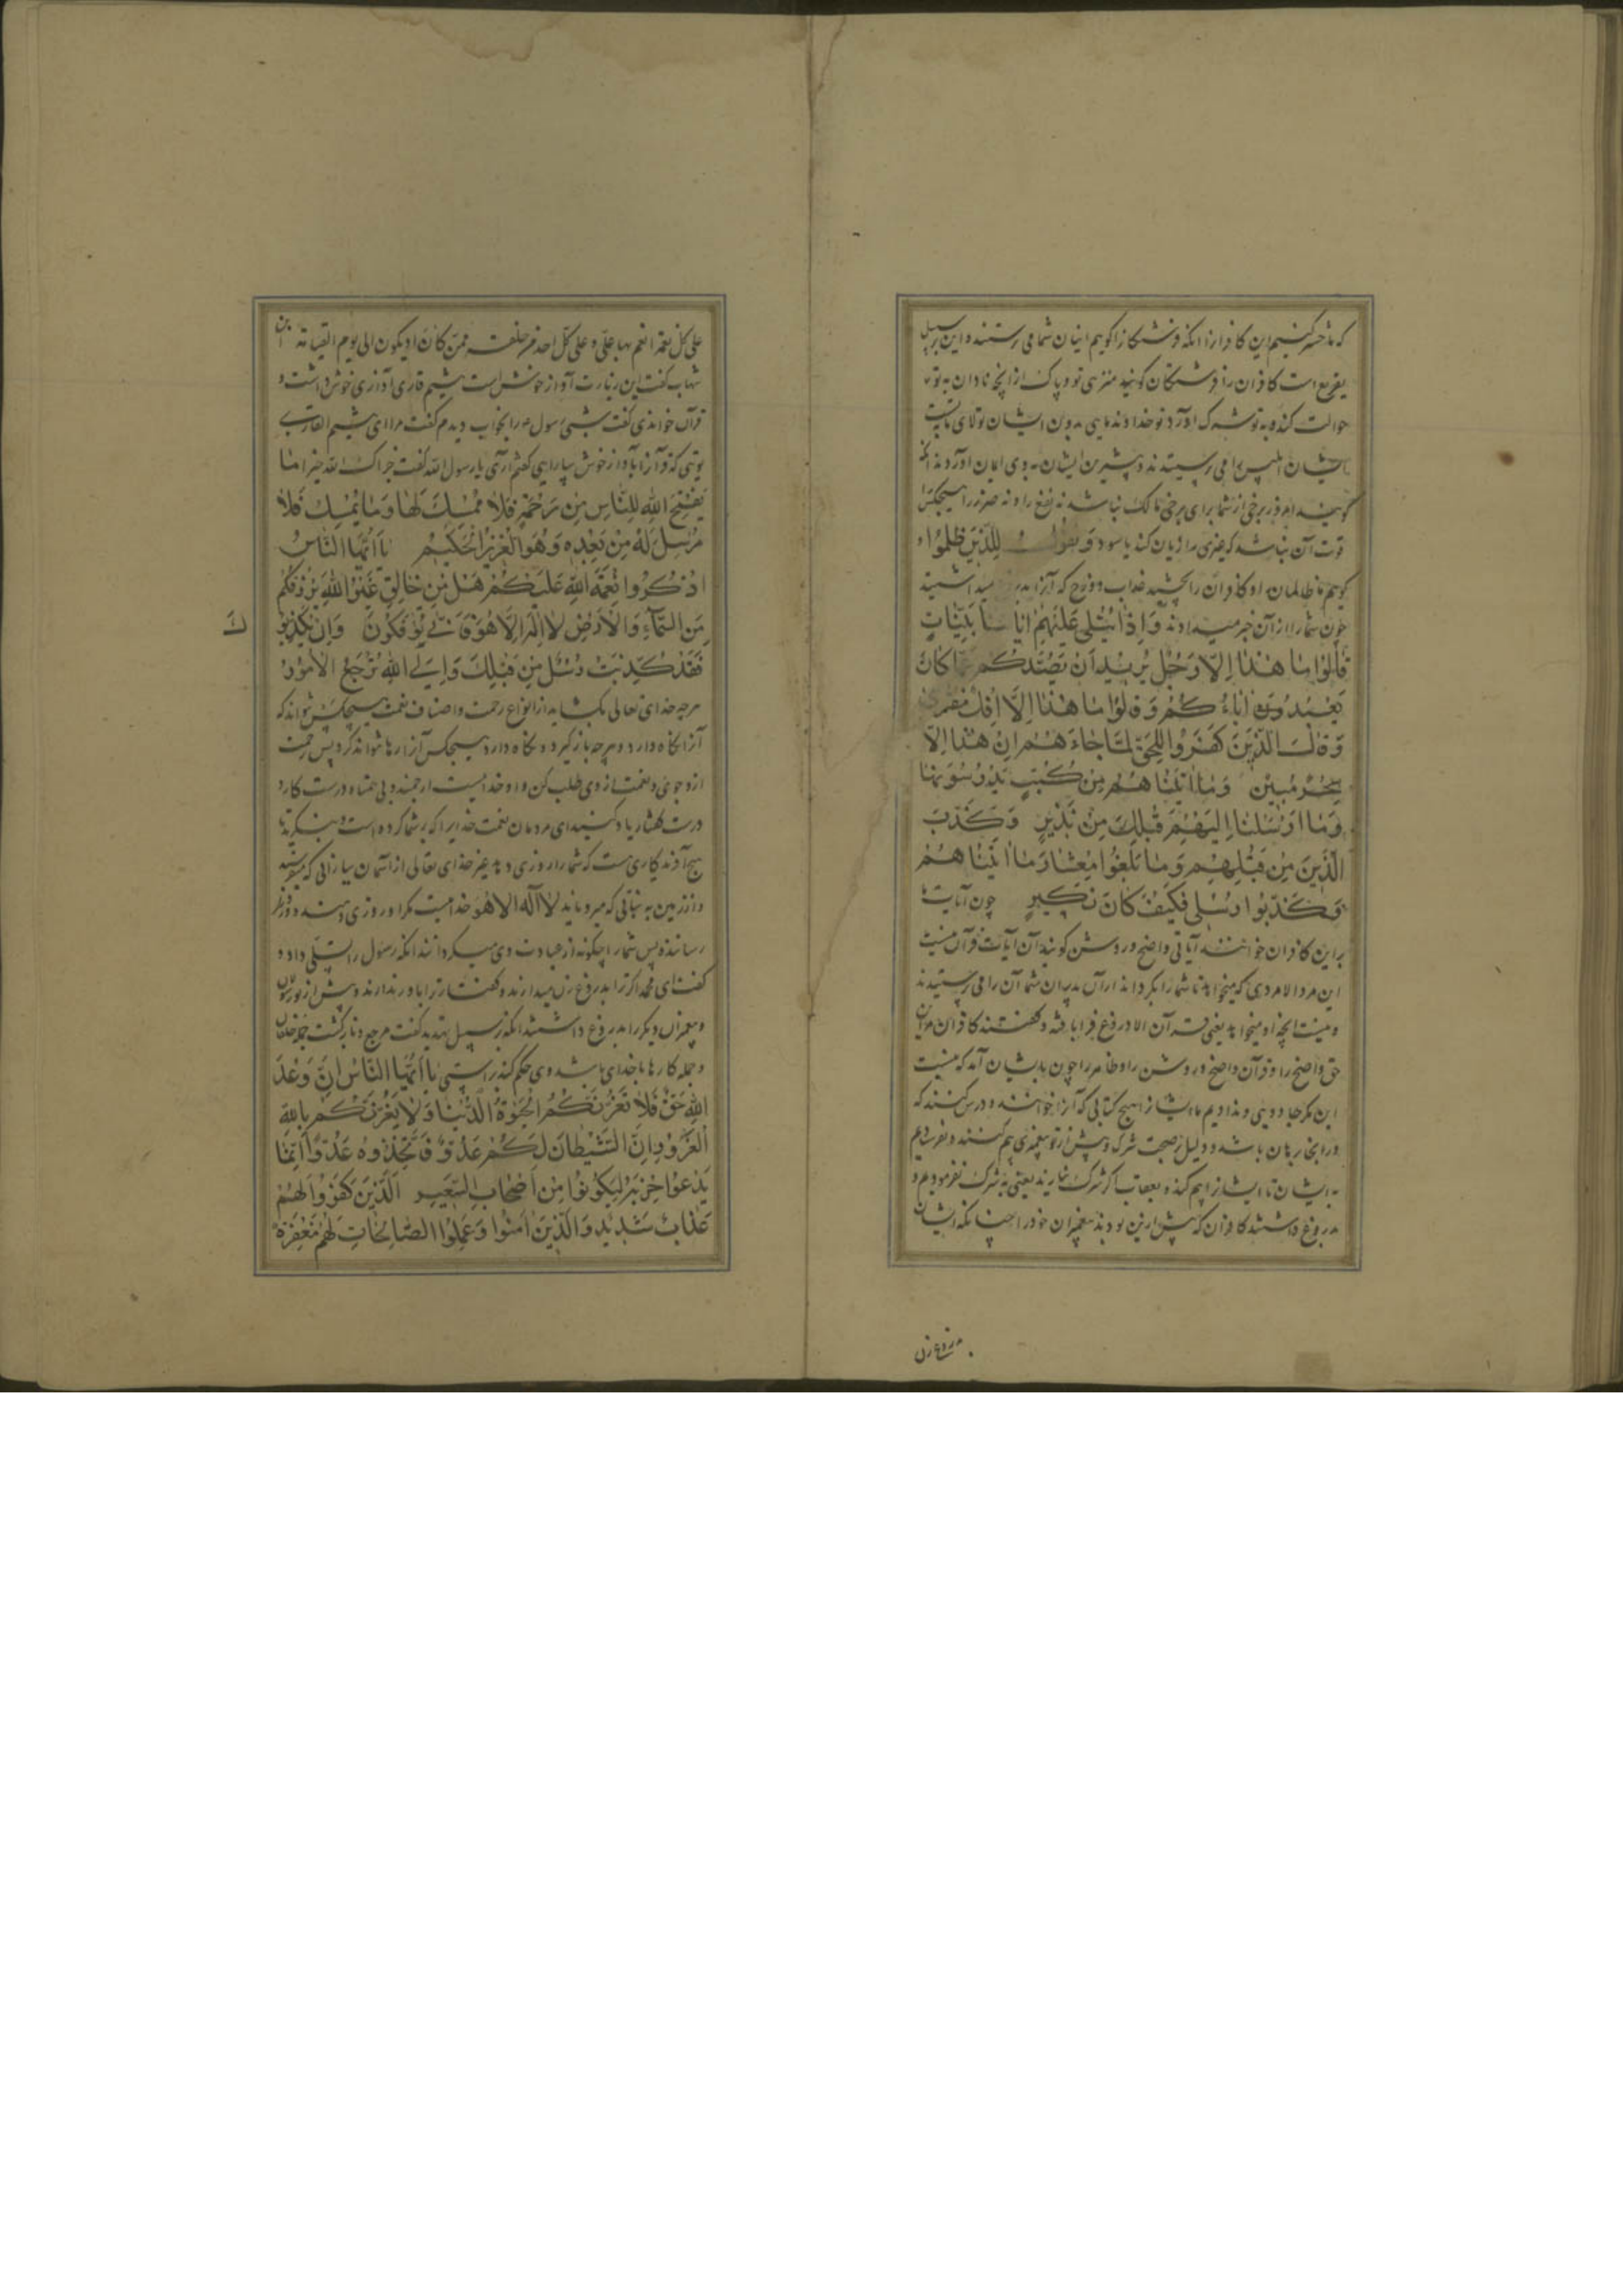 که ما حشر کنیم این کافرانرا انکه فرشتکانرا کوییم اینان شما می پرستند و این بر سبیل
تقریع است کافران را فرشتکان کویند منزهی تو و پاک از انچه نادان به تو
حوالت کنند و به تو شرک آورد تو خداوند مایی بدون ایشان تولای ما به تست
ایشان ابلیس را می پرستیدند و بیشترین ایشان به وی ایمان آوردند انکه
کویند امروز برخی از شما برای برخی مالک نباشد نه نفع را و نه ضرر را هیچکس را
قوت آن نباشد که غیری را زیان کند یا سود وَنَقُولُ لِلَّذِينَ ظَلَمُوا و
کوییم ما ظالمان را و کافران را بچشید عذاب دوزخ که آنرا بدروغ میداشتید
چون شما را از آن خبر میدادند وَإِذَا تُتْلَى عَلَيْهِمْ آيَاتُنَا بَيِّنَاتٍ
قَالُوا مَا هَذَا إِلَّا رَجُلٌ يُرِيدُ أَنْ يَصُدَّكُمْ عَمَّا كَانَ
يَعْبُدُ آبَاؤُكُمْ وَقَالُوا مَا هَذَا إِلَّا إِفْكٌ مُفْتَرًى
وَقَالَ الَّذِينَ كَفَرُوا لِلْحَقِّ لَمَّا جَاءَهُمْ إِنْ هَذَا إِلَّا
سِحْرٌ مُبِينٌ وَمَا آتَيْنَاهُمْ مِنْ كُتُبٍ يَدْرُسُونَهَا
وَمَا أَرْسَلْنَا إِلَيْهِمْ قَبْلَكَ مِنْ نَذِيرٍ وَكَذَّبَ
الَّذِينَ مِنْ قَبْلِهِمْ وَمَا بَلَغُوا مِعْشَارَ مَا آتَيْنَاهُمْ
فَكَذَّبُوا رُسُلِي فَكَيْفَ كَانَ نَكِيرِ چون آیات ما
بر این کافران خوانند آیاتی واضح و روشن کویند آن آیات قرآن نیست
این مرد الا مردی که میخواهد تا شما را بکرداند از آن پدران شما آن را می پرستیدند
و نیست انچه او میخواند یعنی قرآن الا دروغ فرا بافته و کفتند کافران مر آن
حق واضح را و قرآن واضح و روشن را و ظاهر را چون بدیشان آمد که نیست
این مکر جادویی و ندادیم ما ایشانرا هیچ کتابی که آنرا خوانند و درس کنند که
در انجا بیان باشد و دلیل بر صحت شرک و پیش از تو پیغمبری هم کنند و نفرستادیم
به ایشان تا ایشانرا بیم کند و بعقاب اکر شرک نیارند یعنی به شرک نفرمودیم و
بدروغ داشتند کافران که پیش از این بودند پیغمبران خود را چنانکه ایشان
علی کل نعمة انعم بها علیّ و علی کل احد من خلقه ممن کان او یکون الی یوم القیامة
شهاب کفت این زیادت آواز خوش است هیثم قاری آوازی خوش داشت و
قرآن خواندی کفت شبی رسول را بخواب دیدم کفت مرا ای هیثم القاری
تویی که قرآنرا بآواز خوش بیارایی کفتم آری یا رسول الله کفت جزاک الله خیرا مَا
يَفْتَحِ اللَّهُ لِلنَّاسِ مِنْ رَحْمَةٍ فَلَا مُمْسِكَ لَهَا وَمَا يُمْسِكْ فَلَا
مُرْسِلَ لَهُ مِنْ بَعْدِهِ وَهُوَ الْعَزِيزُ الْحَكِيمُ يَا أَيُّهَا النَّاسُ
اذْكُرُوا نِعْمَةَ اللَّهِ عَلَيْكُمْ هَلْ مِنْ خَالِقٍ غَيْرُ اللَّهِ يَرْزُقُكُمْ
مِنَ السَّمَاءِ وَالْأَرْضِ لَا إِلَهَ إِلَّا هُوَ فَأَنَّى تُؤْفَكُونَ وَإِنْ يُكَذِّبُو
كَ
فَقَدْ كُذِّبَتْ رُسُلٌ مِنْ قَبْلِكَ وَإِلَى اللَّهِ تُرْجَعُ الْأُمُورُ
هرچه خدای تعالی بکشاید از انواع رحمت و اصناف نعمت هیچکس نتواند که
آنرا نکاه دارد و هرچه باز کیرد و نکاه دارد هیچکس آنرا رها نتواند کرد پس رحمت
ازو جوی و نعمت از وی طلب کن و او خداییست ارجمند و بی همتا و درست کار و
درست کفتار یاد کنید ای مردمان نعمت خدایرا که بر شما کرده است و بنکرید تا
هیچ آفریدکاری هست که شما را روزی دهد غیر خدای تعالی از آسمان ببارانی که
و از زمین به نباتی که میرویاند لا اله الا هو خدا نیست مکر او روزی دهنده
رساننده پس شما را چکونه از عبادت وی میکردانند انکه رسول را تسلی داد و
کفت ای محمد اکر ترا بدروغ زن میدارند و کفتار ترا باور ندارند و پیش از تو رسولان
و پیغمبران دیکر را بدروغ داشتند انکه بر سبیل تهدید کفت مرجع و بازکشت جمله خلقان
و جمله کارها با خدای باشد وی حکم کند براستی يَا أَيُّهَا النَّاسُ إِنَّ وَعْدَ
اللَّهِ حَقٌّ فَلَا تَغُرَّنَّكُمُ الْحَيَوةُ الدُّنْيَا وَلَا يَغُرَّنَّكُمْ بِاللَّهِ
الْغَرُورُ إِنَّ الشَّيْطَانَ لَكُمْ عَدُوٌّ فَاتَّخِذُوهُ عَدُوًّا إِنَّمَا
يَدْعُوا حِزْبَهُ لِيَكُونُوا مِنْ أَصْحَابِ السَّعِيرِ الَّذِينَ كَفَرُوا لَهُمْ
عَذَابٌ شَدِيدٌ وَالَّذِينَ آمَنُوا وَعَمِلُوا الصَّالِحَاتِ لَهُمْ مَغْفِرَةٌ